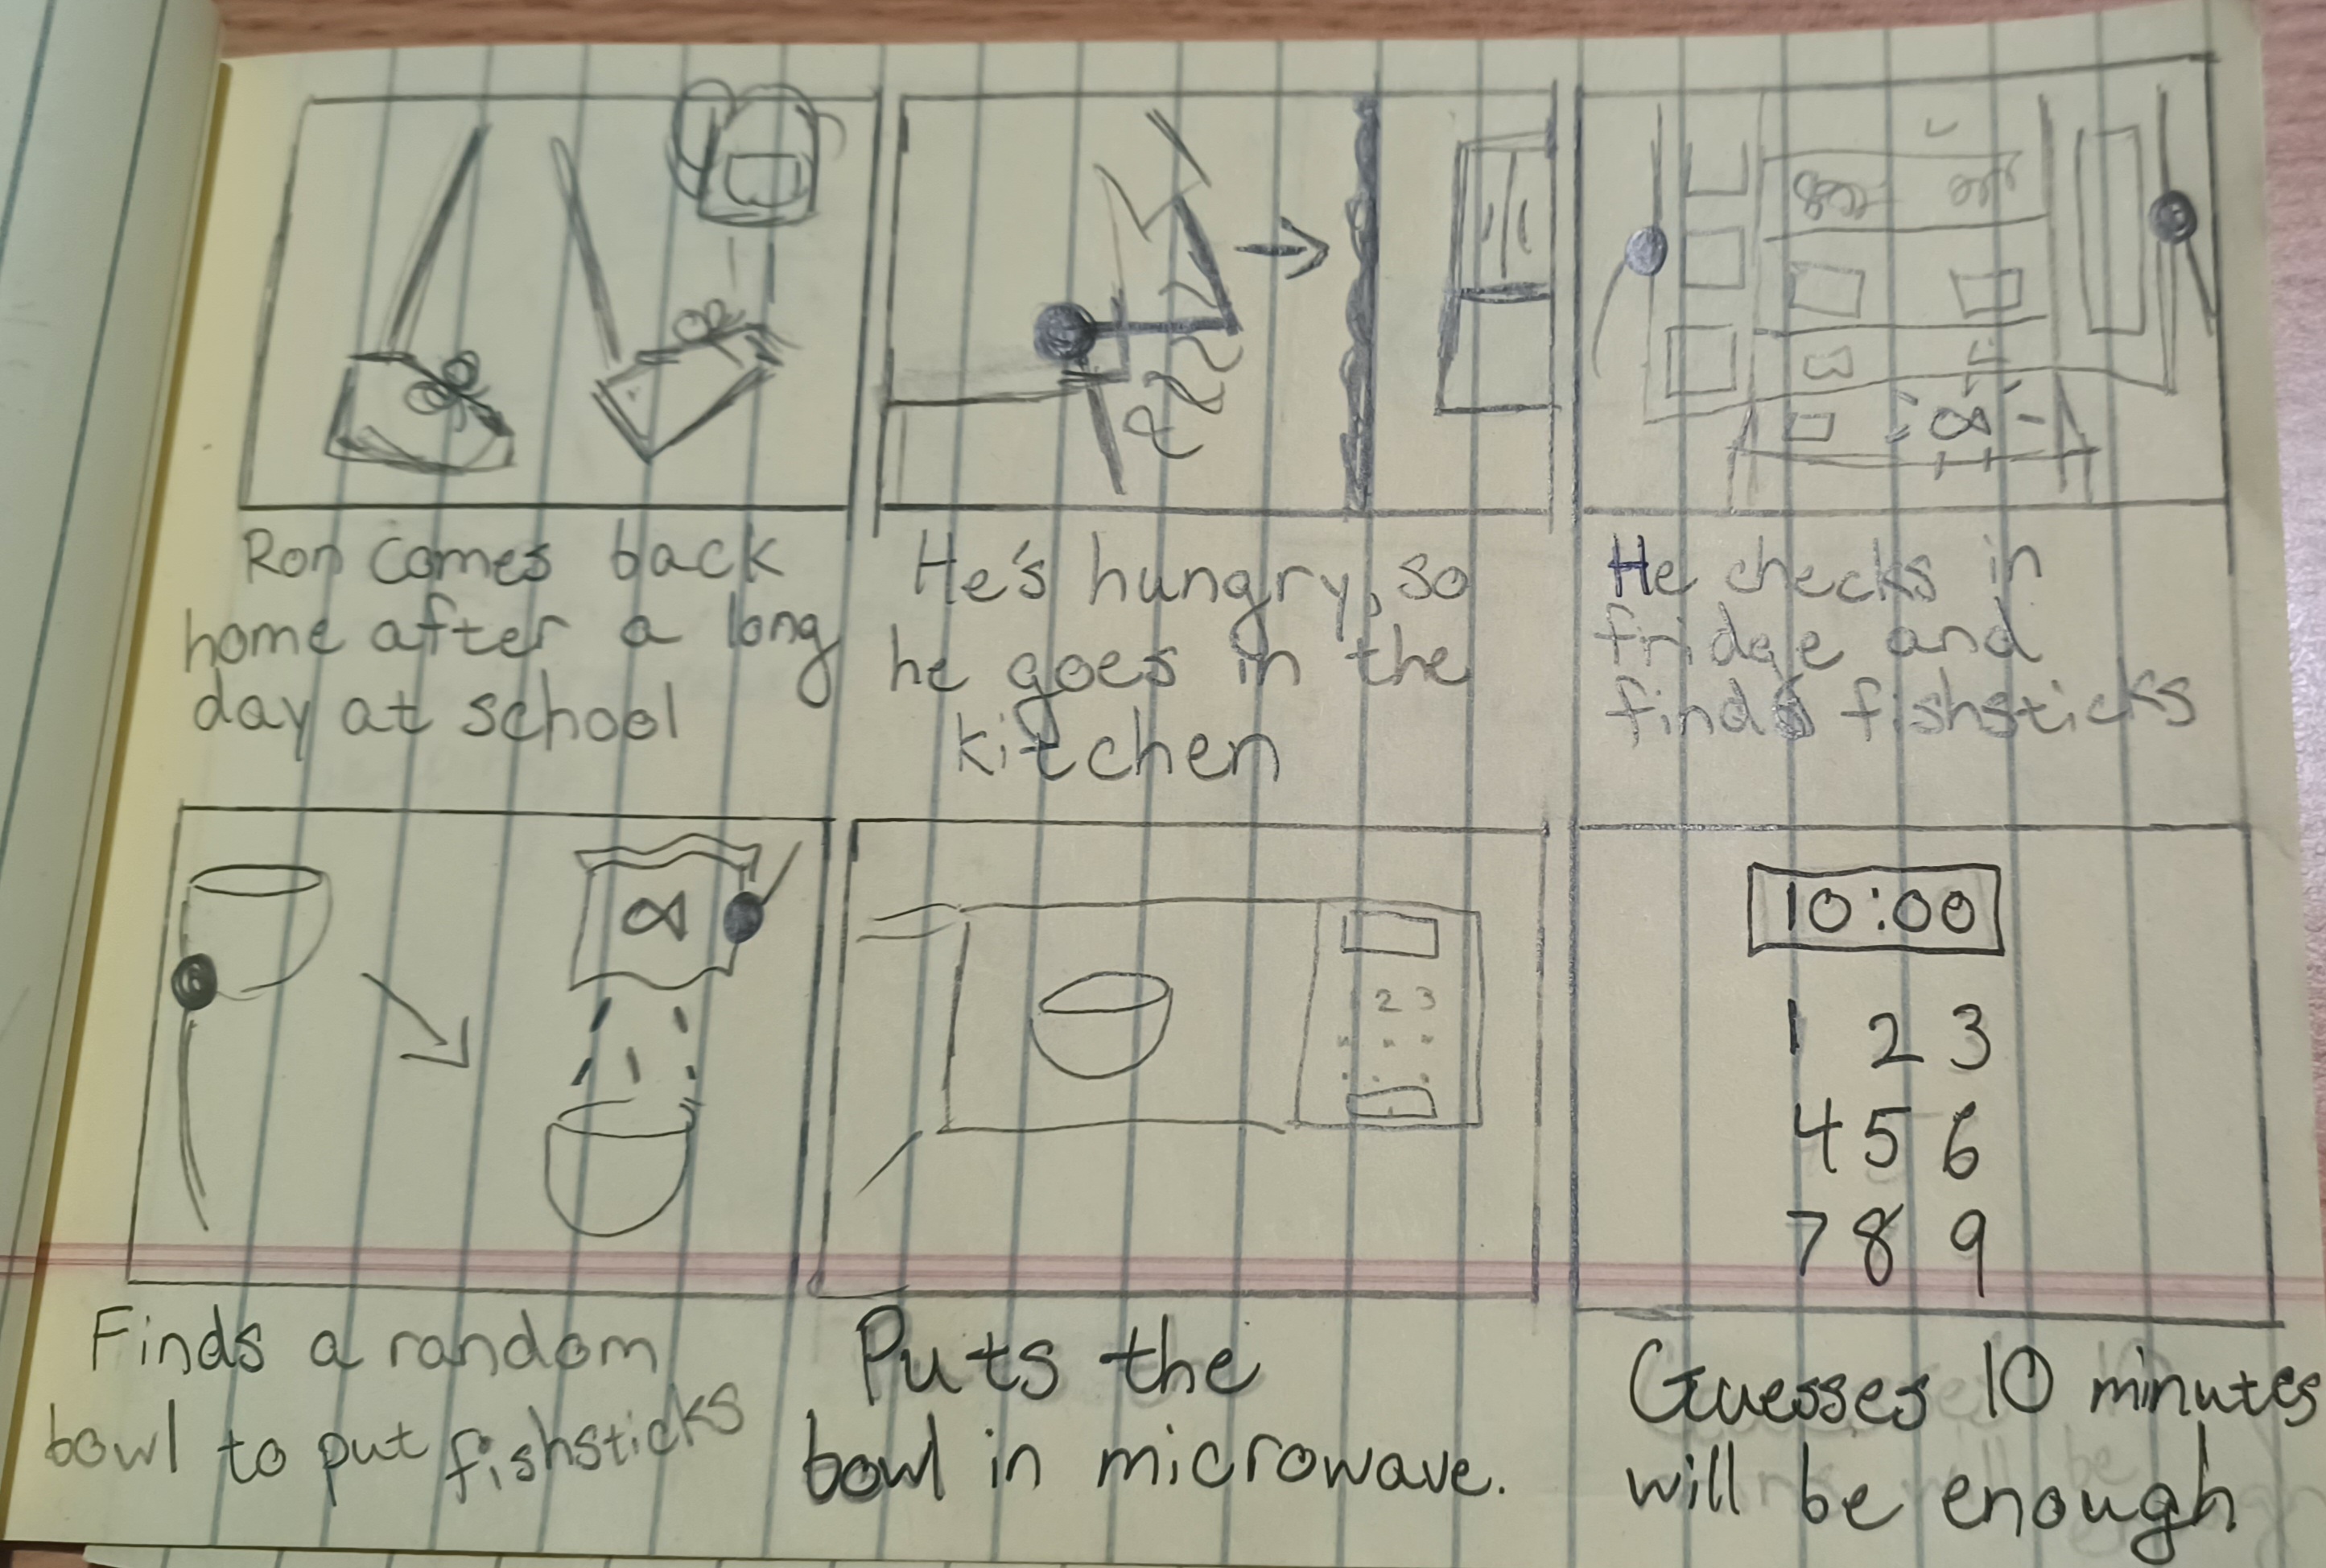 Ron comes back
home after a long
day at school
He's hungry, so
he goes in the
kitchen
He checks in
fridge and
finds fishsticks
Finds a random
bowl to put fishsticks
2 3
Puts the
bowl in microwave.
10:00
1 2 3
4 5 6
7 8 9
Guesses 10 minutes
will be enough